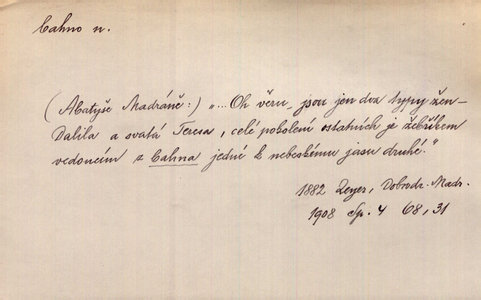 bahno n.
(Matyše Madráně:) „... Oh věru, jsou jen dva typy žen–
Dalila a svatá Teresa, celé pokolení ostatních je žebříkem
vedoucím z bahna jedné k nebeskému jasu druhé."
1882 Zeyer, Dobrodr. Madr.
1908 Sp. 4 68,31